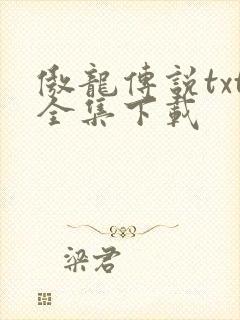 傲龍傳説txt
全集下載
梁君